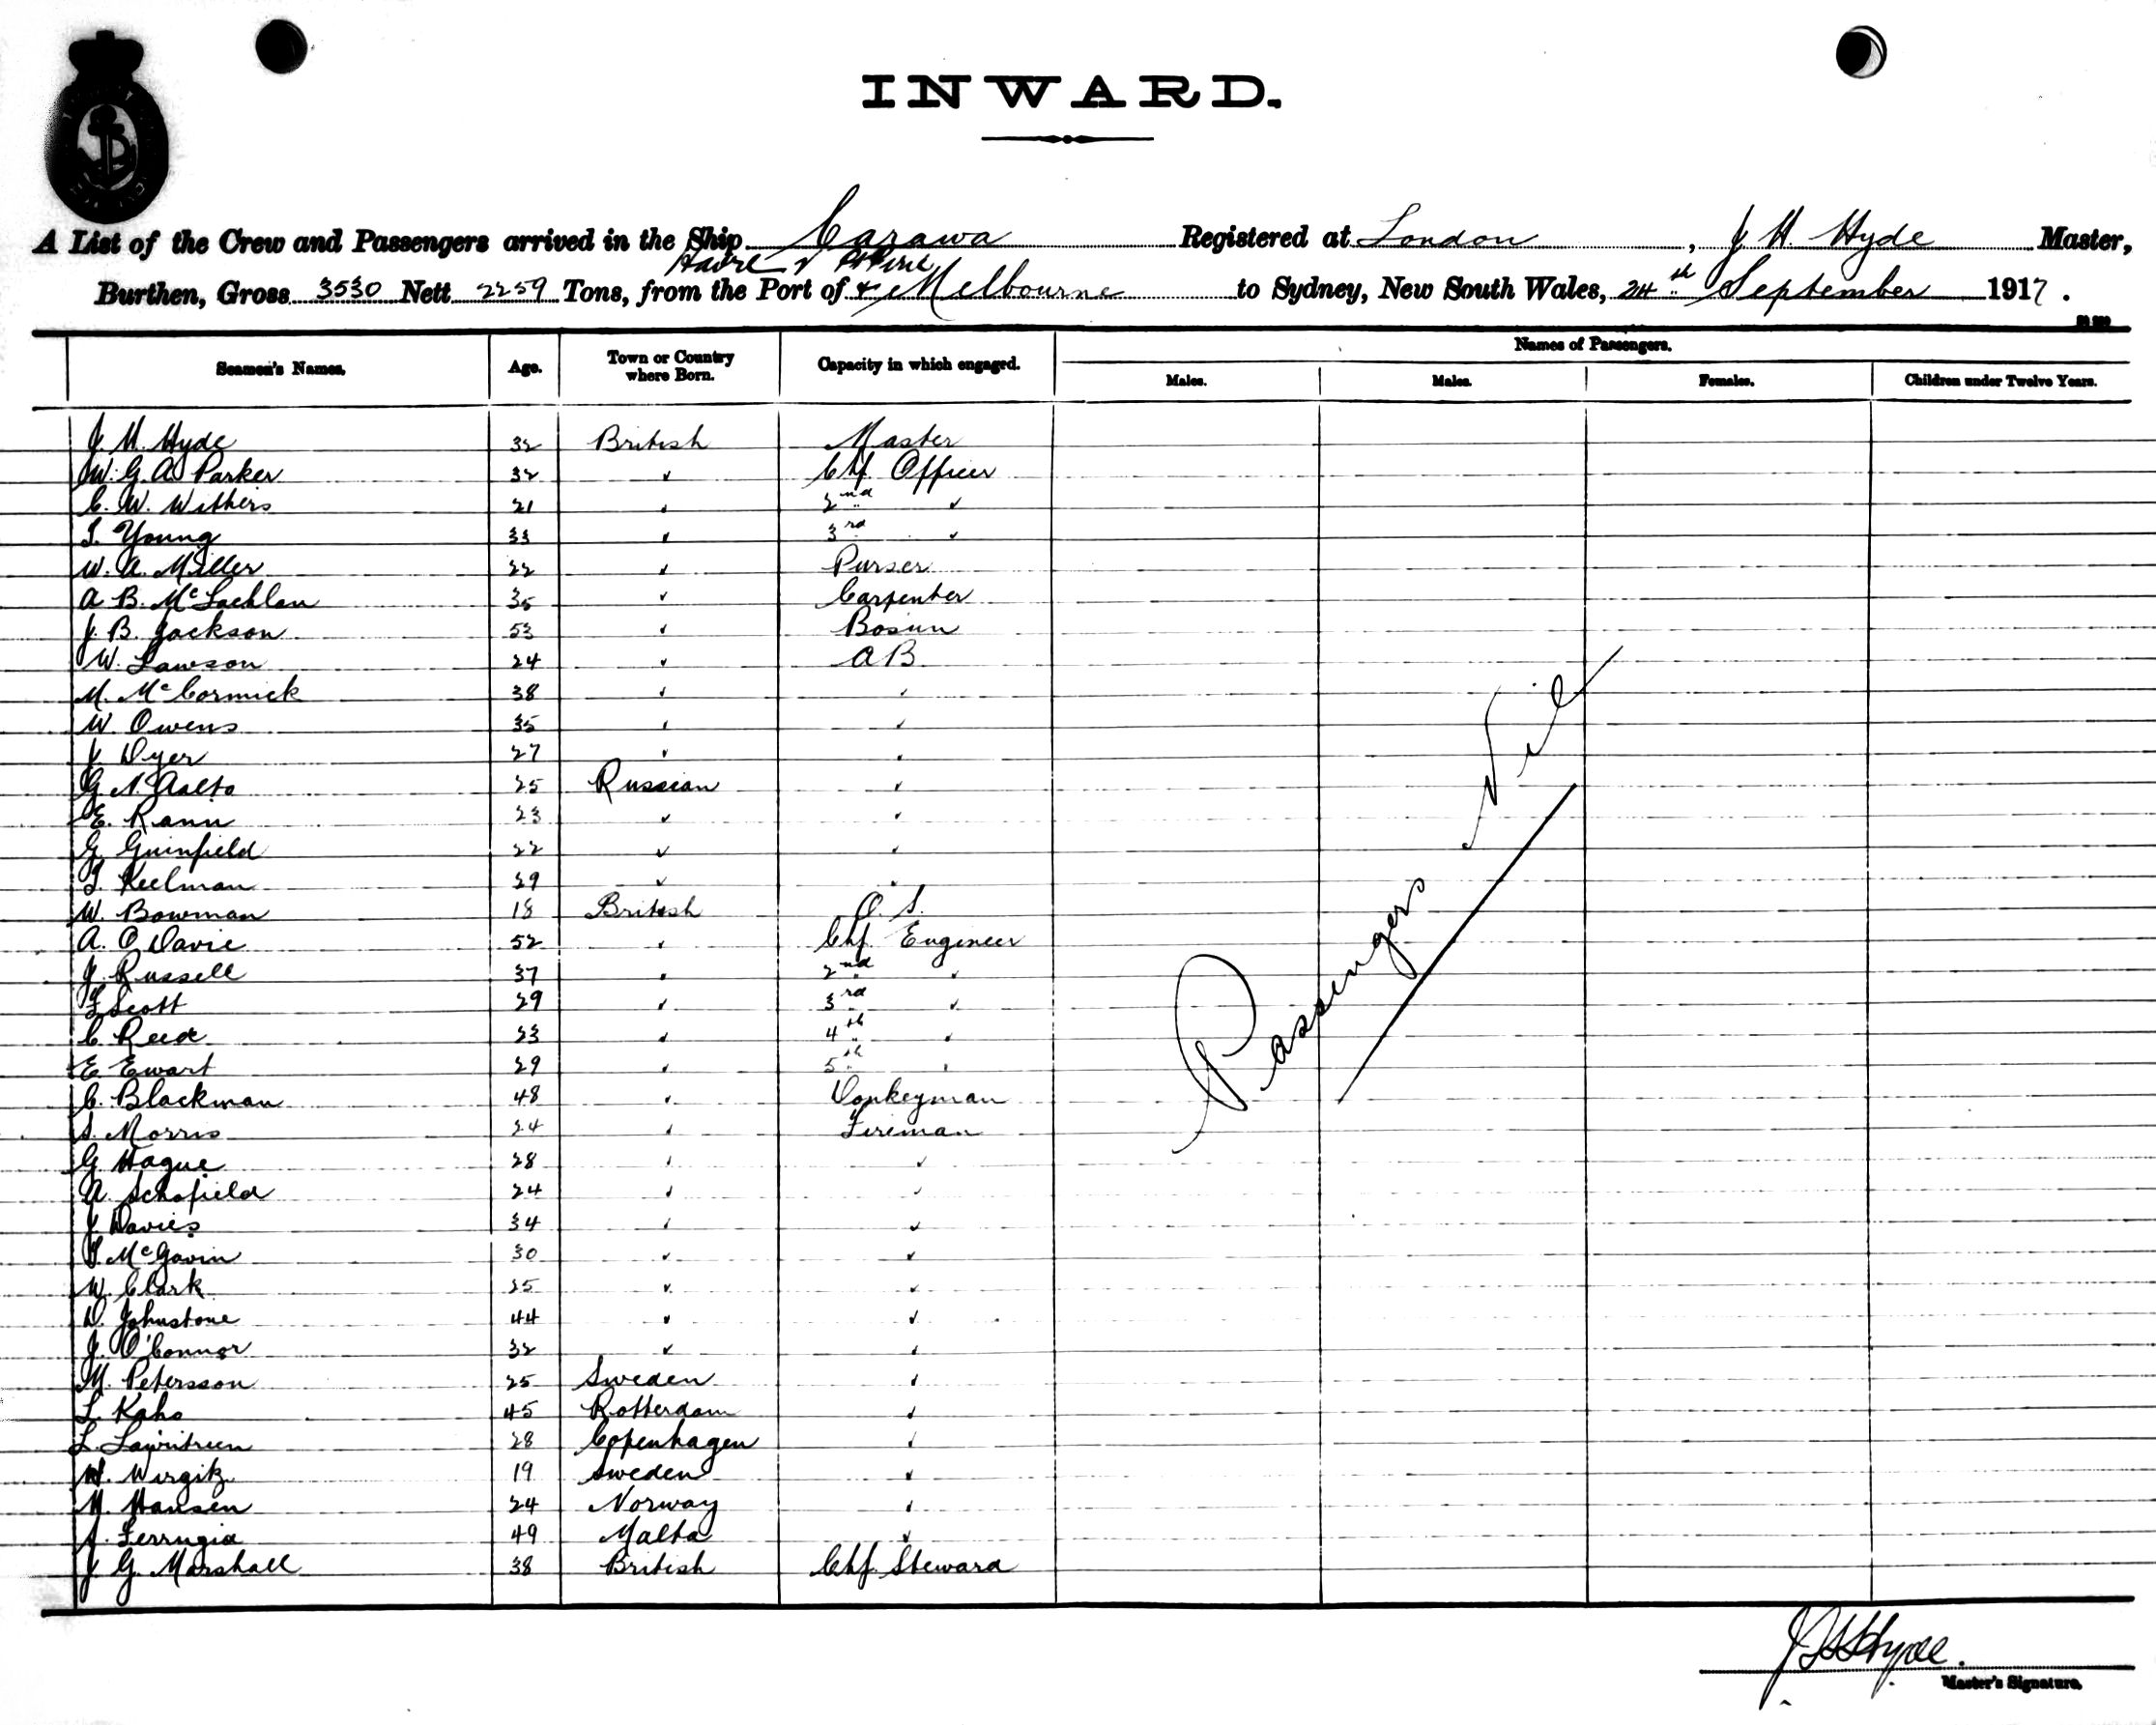 INWARD.
A List of the Crew and Passengers arrived in the Ship Carawa Registered at London, J H Hyde Master,
Havre
Burthen, Gross 3530 Nett 2259 Tons, from the Port of & Melbourne to Sydney, New South Wales, 24th September 1917.
Names of Passengers.
Seamen's Names. Age. Town or Country where Born. Capacity in which engaged. Males. Males. Females. Children under Twelve Years.
J. H. Hyde 32 British Master
W. G. A. Parker 32 ✓ Chf Officer
C. W. Withers 21 ✓ 2nd ✓
T. Young 33 ✓ 3rd ✓
W. A. Miller 22 ✓ Purser
A B. McLachlan 35 ✓ Carpenter
J. B. Jackson 53 ✓ Bosun
W. Lawson 24 ✓ AB
M. McCormick 38 ✓ ✓
W. Owens 35 ✓ ✓
J. Dyer 27 ✓ ✓
G. N. Aalto 25 Russian ✓
E. Rann 23 ✓ ✓
G. Guinfield 22 ✓ ✓
T. Keelman 29 ✓ ✓
W. Bowman 18 British O. S.
A. O Davie 52 ✓ Chf Engineer
J. Russell 37 ✓ 2nd ✓
F Scott 29 ✓ 3rd ✓
C Reed 23 ✓ 4th ✓
E Ewart 29 ✓ 5th ✓
C. Blackman 48 ✓ Donkeyman
S. Morris 24 ✓ Fireman
G. Hague 28 ✓ ✓
A Schofield 24 ✓ ✓
J. Davies 34 ✓ ✓
T. McGavin 30 ✓ ✓
W. Clark 25 ✓ ✓
D. Johnstone 44 ✓ ✓
J. O'Connor 32 ✓ ✓
M. Petersson 25 Sweden ✓
L. Kaho 45 Rotterdam ✓
L. 28 Copenhagen ✓
H. Wirgitz 19 Sweden ✓
H. Hansen 24 Norway ✓
A. Ferrugia 49 Malta ✓
J G. Marshall 38 British Chf. Steward
Passengers Nil
J H Hyde.
Master's Signature.